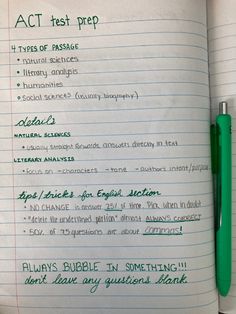 ACT test prep
4 TYPES OF PASSAGE
• natural sciences
• literary analysis
• humanities
• social sciences (usually biography)
details
NATURAL SCIENCES
• usually straight forwards answers directly in text
LITERARY ANALYSIS
• focus on - characters - tone - author's intent/purpose
tips/tricks for English section
• NO CHANGE is answer 25% of time. Pick when in doubt
• "delete the underlined portion" almost ALWAYS CORRECT
• 50% of 75 questions are about commas!
ALWAYS BUBBLE IN SOMETHING!!!
don't leave any questions blank